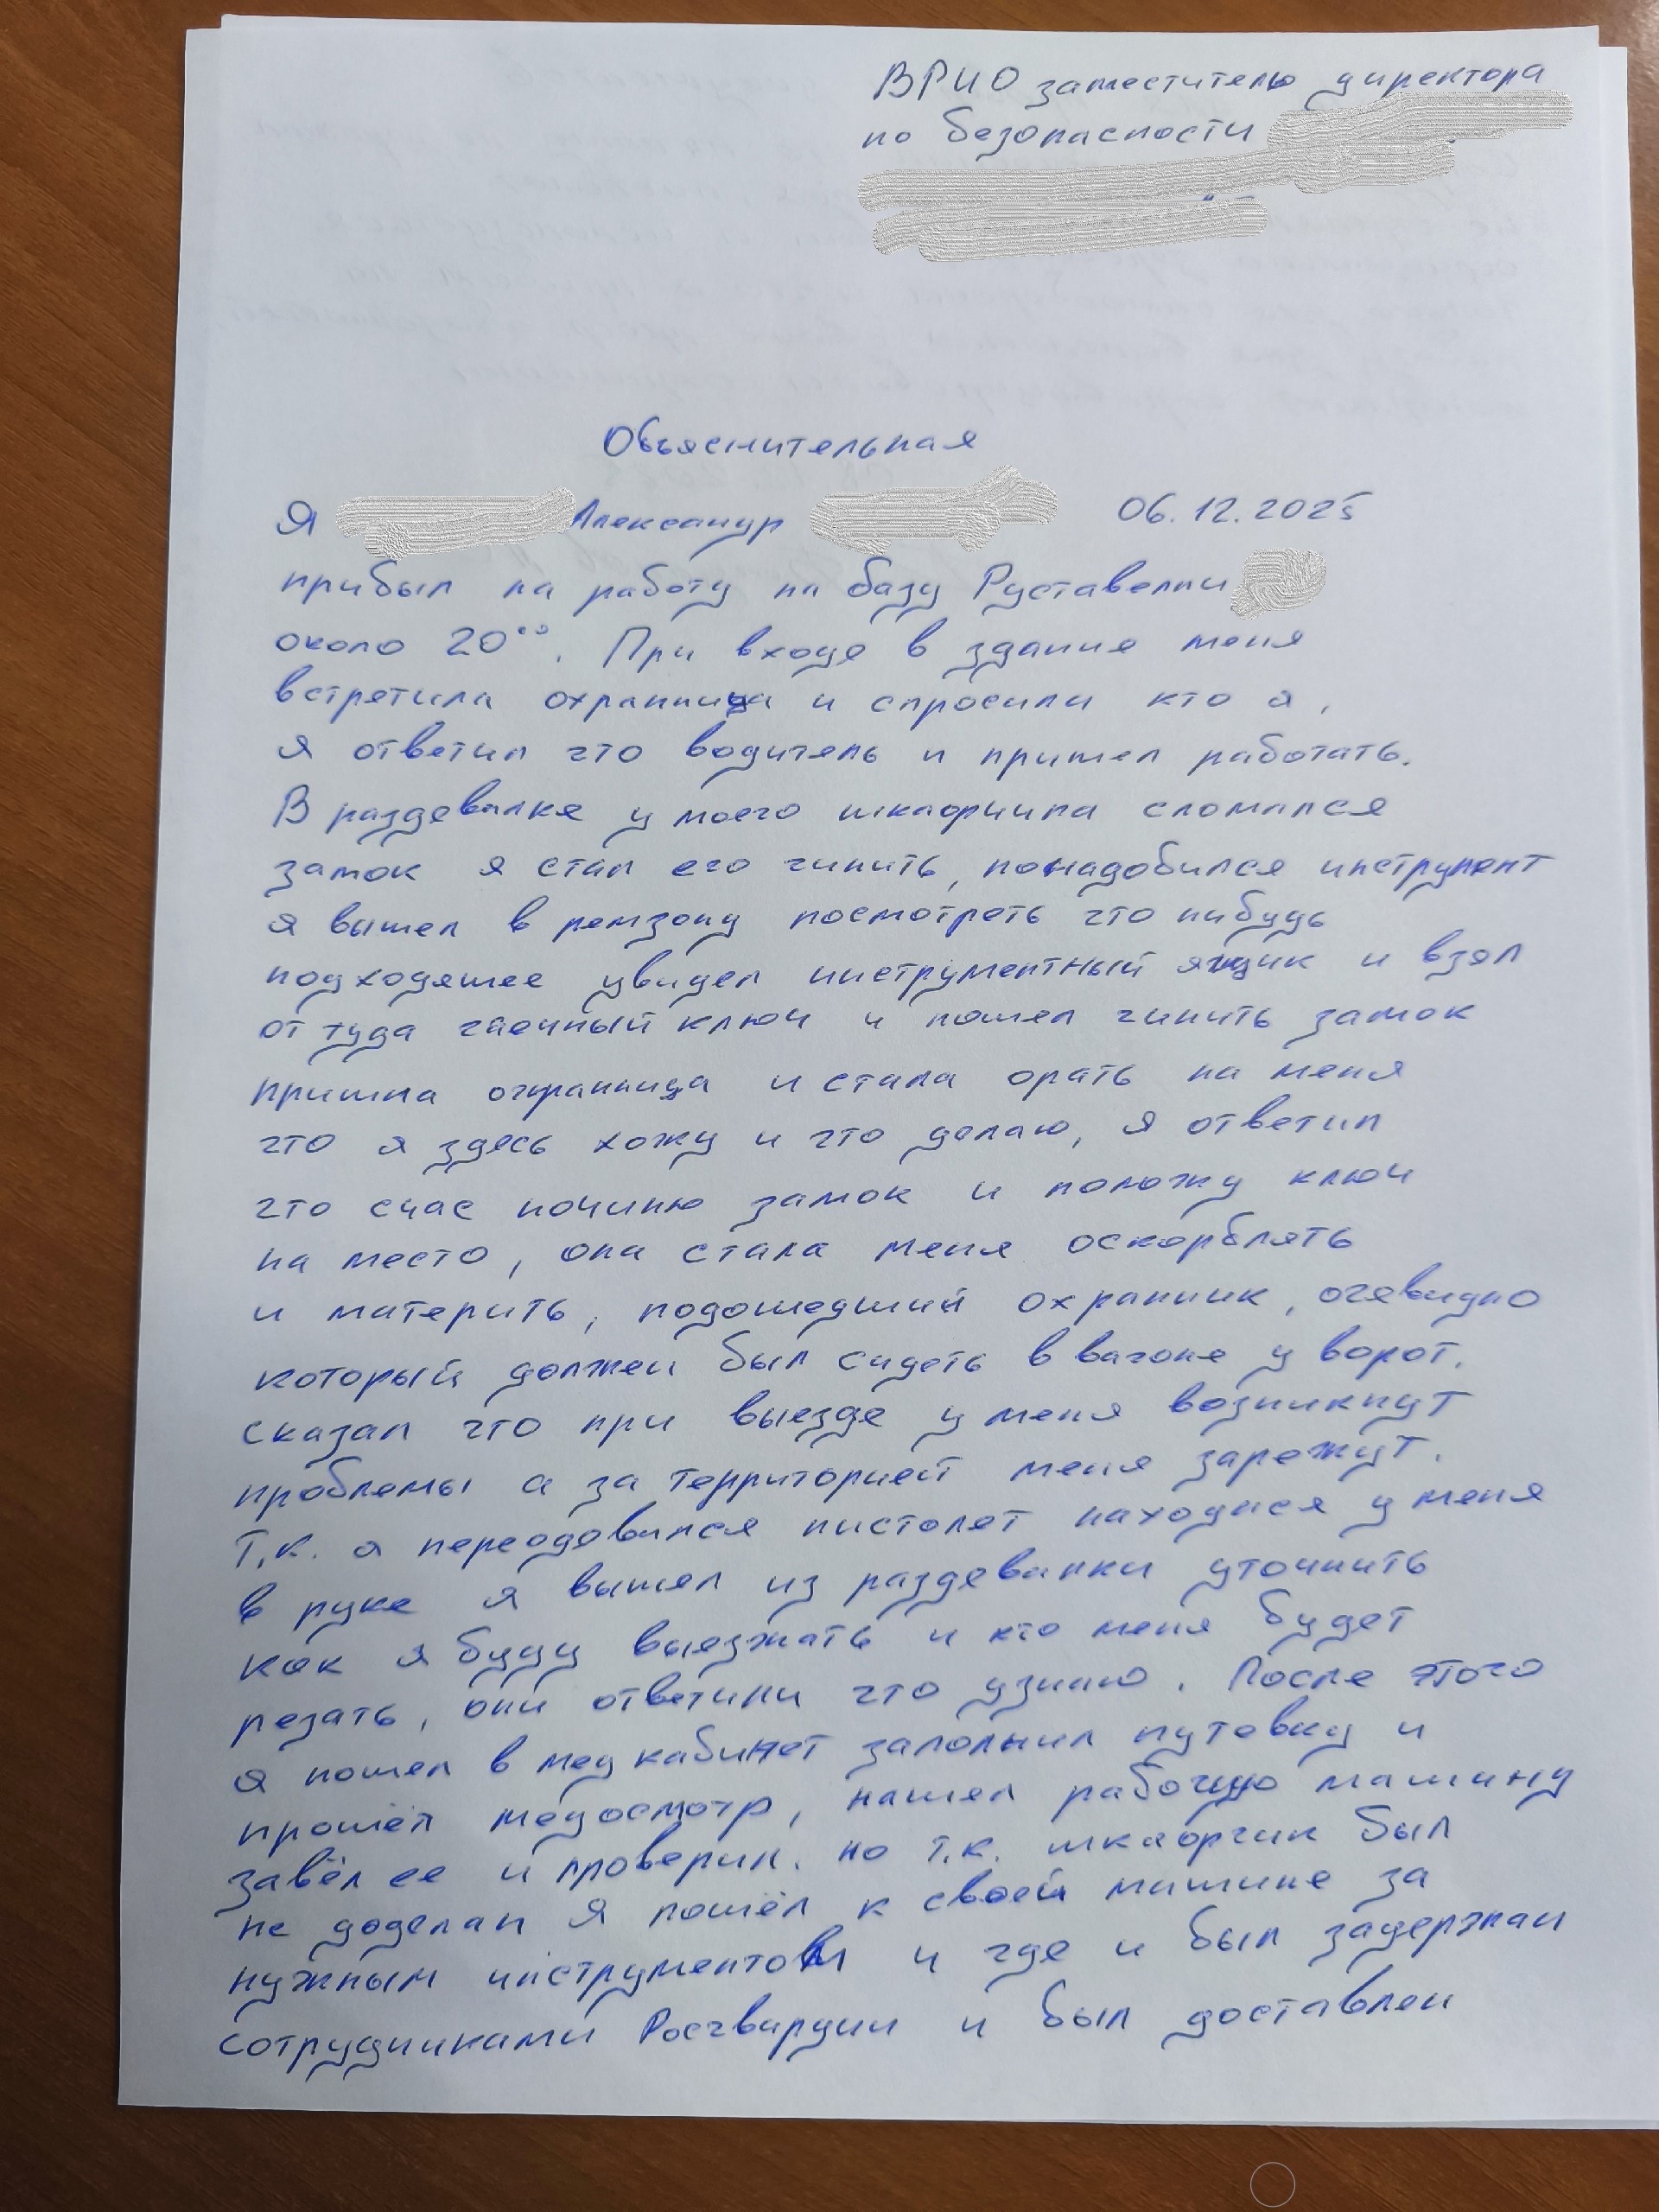 ВРИО заместитель директора
по безопасности
Объяснительная
Я Александр 06.12.2025
прибыл на работу на базу Руставелли
около 20°°. При входе в здание меня
встретила охранница и спросили кто я,
я ответил что водитель и пришел работать.
В раздевалке у моего шкафчика сломался
замок я стал его чинить, понадобился инструмент
я вышел в ремзону посмотреть что нибудь
подходящее увидел инструментный ящик и взял
от туда гаечный ключ и пошел чинить замок
пришла охранница и стала орать на меня
что я здесь хожу и что делаю, я ответил
что счас починю замок и положу ключ
на место, она стала меня оскорблять
и материть, подошедший охранник, очевидно
который должен был сидеть в вагоне у ворот.
сказал что при выезде у меня возникнут
проблемы а за территорией меня зарежут.
Т.к. я переодевался пистолет находися у меня
в руке я вышел из раздевалки уточнить
как я буду выезжать и кто меня будет
резать, они ответили что узнаю. После этого
я пошел в мед кабинет заполнил путевку и
прошёл медосмотр, нашел рабочую машину
завёл ее и проверил. но т.к. шкафчик был
не доделан я пошёл к своей машине за
нужным инструментом и где и был задержан
сотрудниками Росгвардии и был доставлен